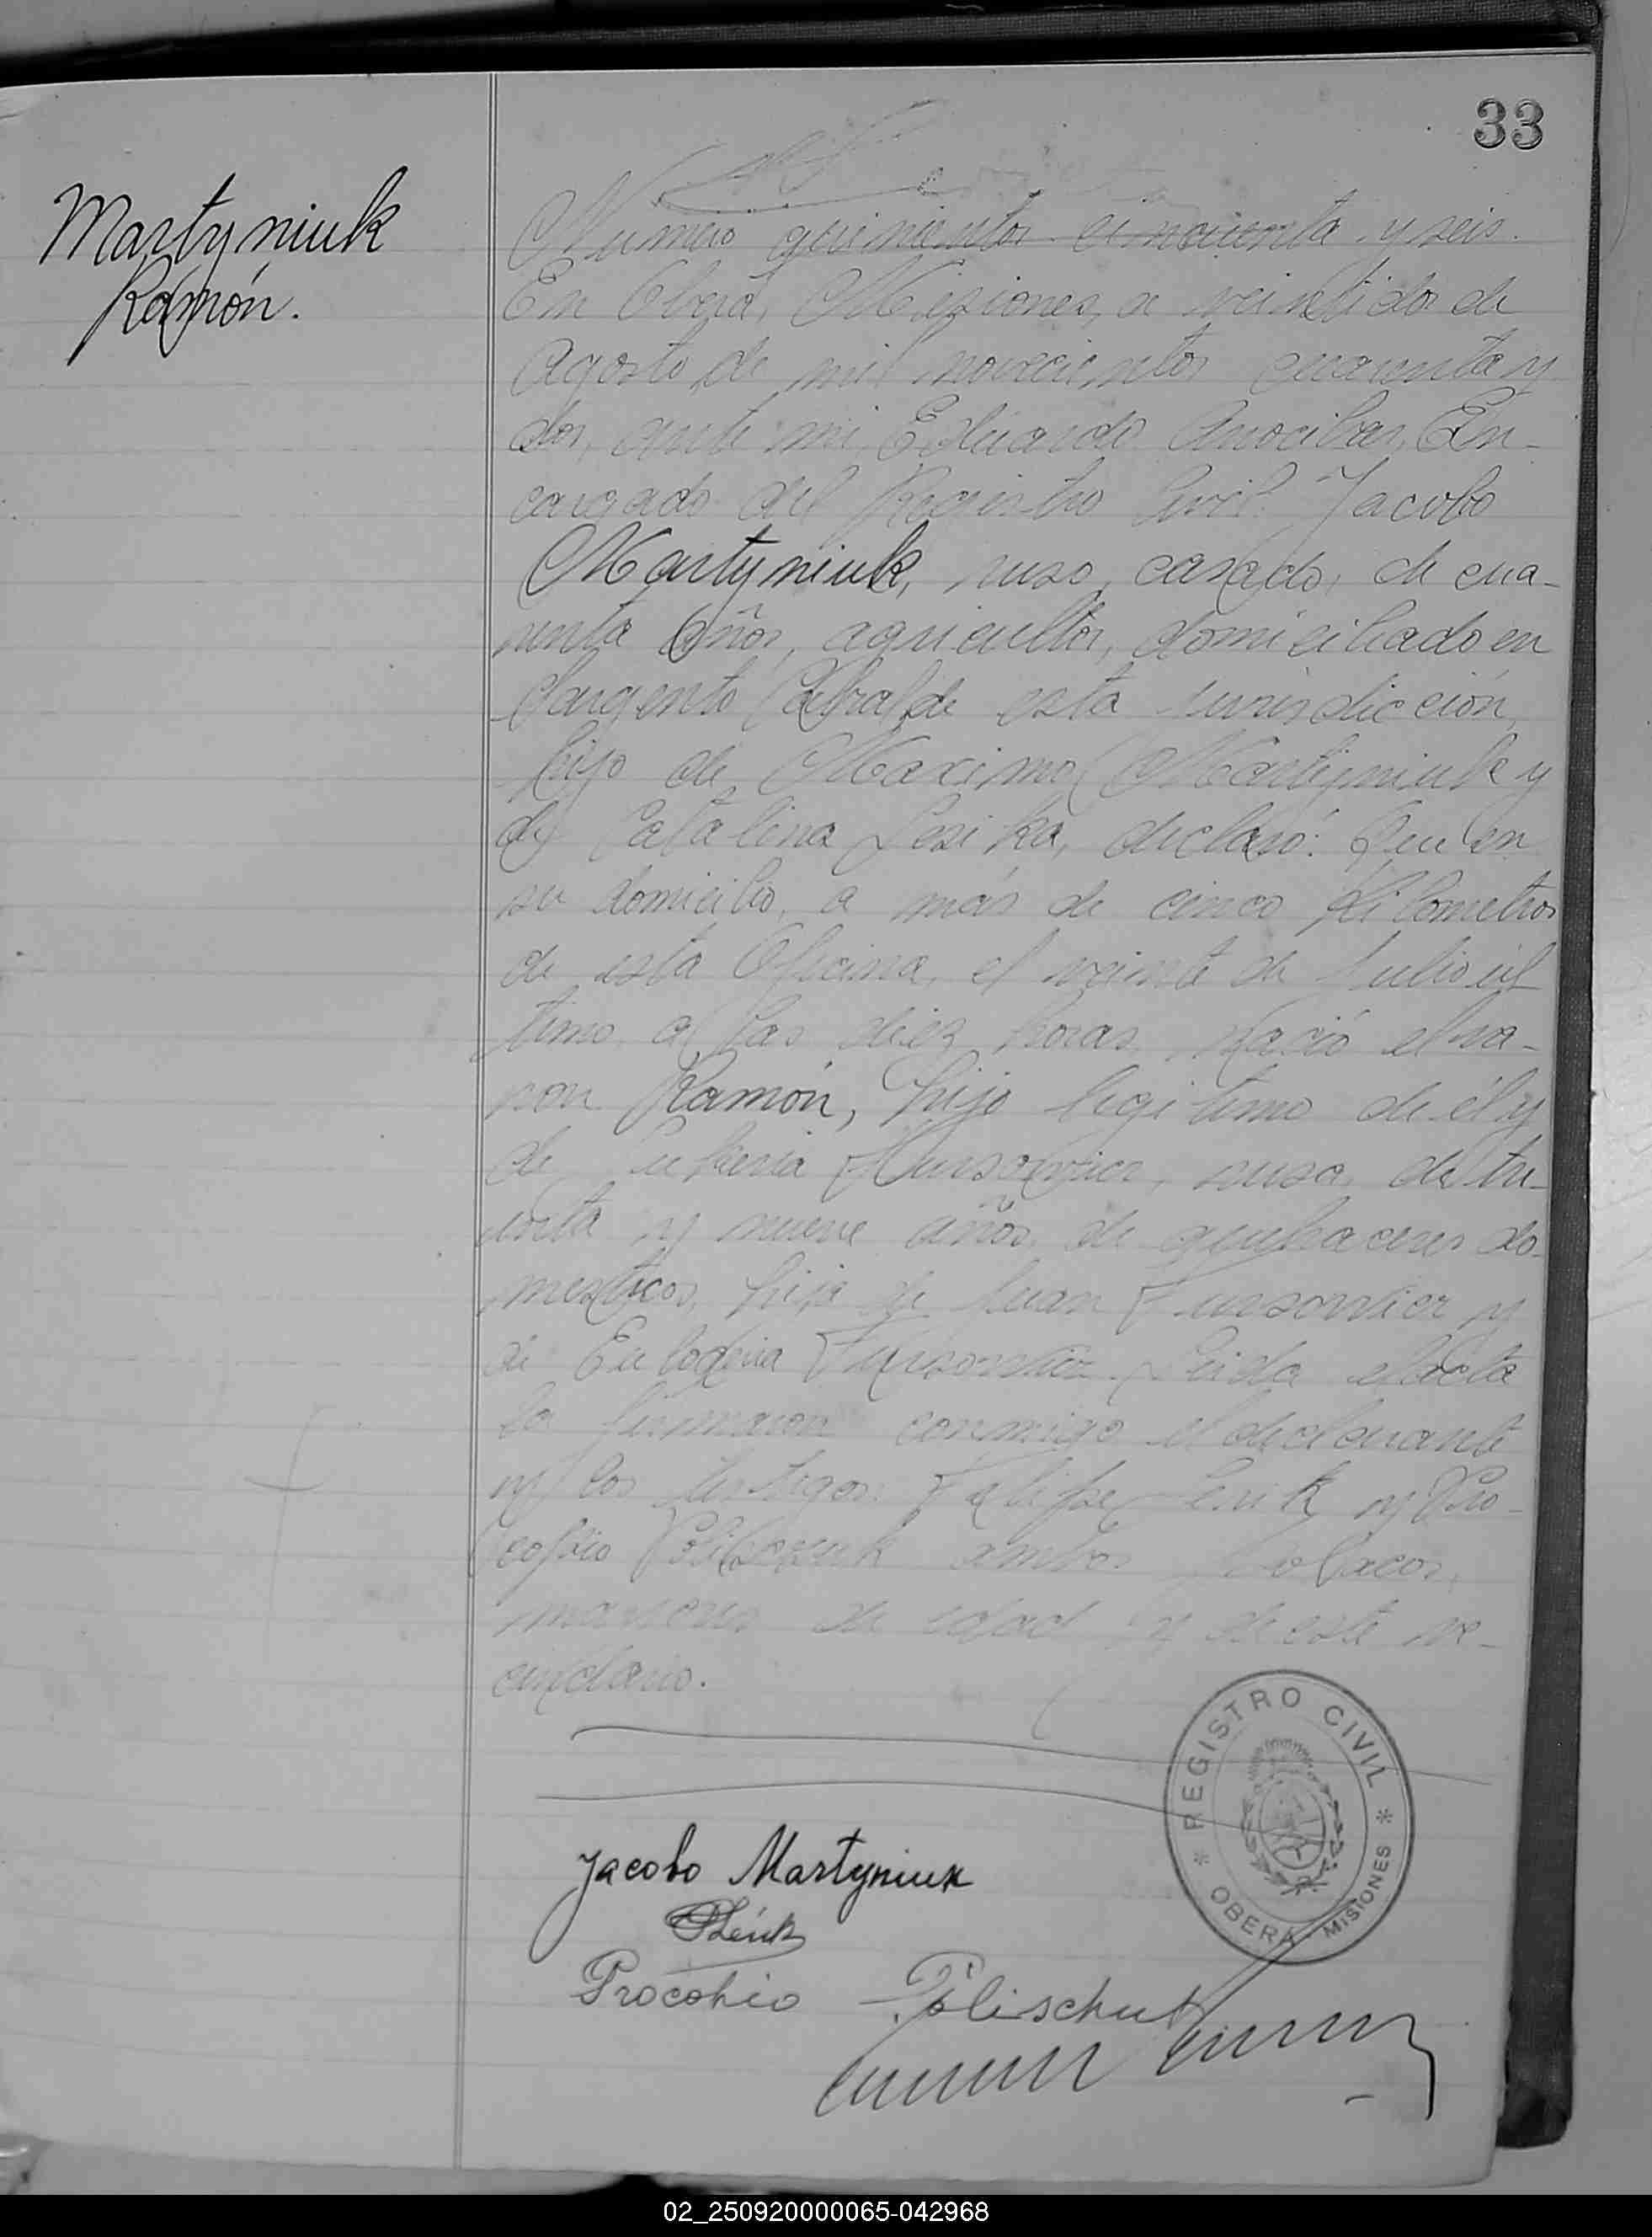 33
Martyniuk
Ramón.
Numero quinientos cincuenta y seis.
En Oberá, Misiones, a veintidos de
Agosto de mil novecientos cuarenta y
dos, ante mi Eduardo Anocibar, En-
cargado del Registro Civil: Jacobo
Martyniuk, ruso, casado, de cua-
renta años, agricultor, domiciliado en
Sargento Cabral de esta jurisdicción,
hijo de Maximo Martyniuk y
de Catalina Lesika, declaró: Que en
su domicilio, a más de cinco kilometros
de esta Oficina, el veinte de Julio úl-
timo a las diez horas, nació el va-
ron Ramón, hijo legitimo de él y
de rusa, de tre-
inta y nueve años, de quehaceres do-
mesticos, hija de Juan Fursowicz y
de Fursowicz. Leida el acta
la firmaron conmigo el declarante
y los testigos: Felipe Lenik y Pro-
cofio Polischuk ambos polacos,
mayores de edad y de este ve-
cindario.
REGISTRO CIVIL
OBERA - MISIONES
Jacobo Martyniuk
Procohio Polischuk
02_250920000065-042968